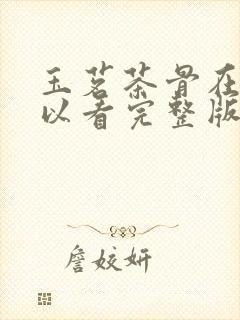 玉茗茶骨在
以看完整版
詹姣妍